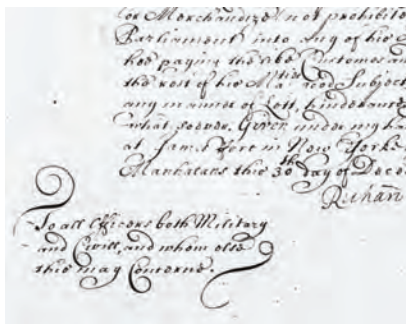 or Merchandize not prohibite
Parliament into any of his
hee paying the like Customes an
the rest of his Ma:ties good Subject
any manner of Lett, hinderance
what soever. Given under my ha
at James fort in New Yorke
Manhatans this 30th day of Dece
Richard
To all Officers both Military
and Civill, and whom else
this may Concerne.